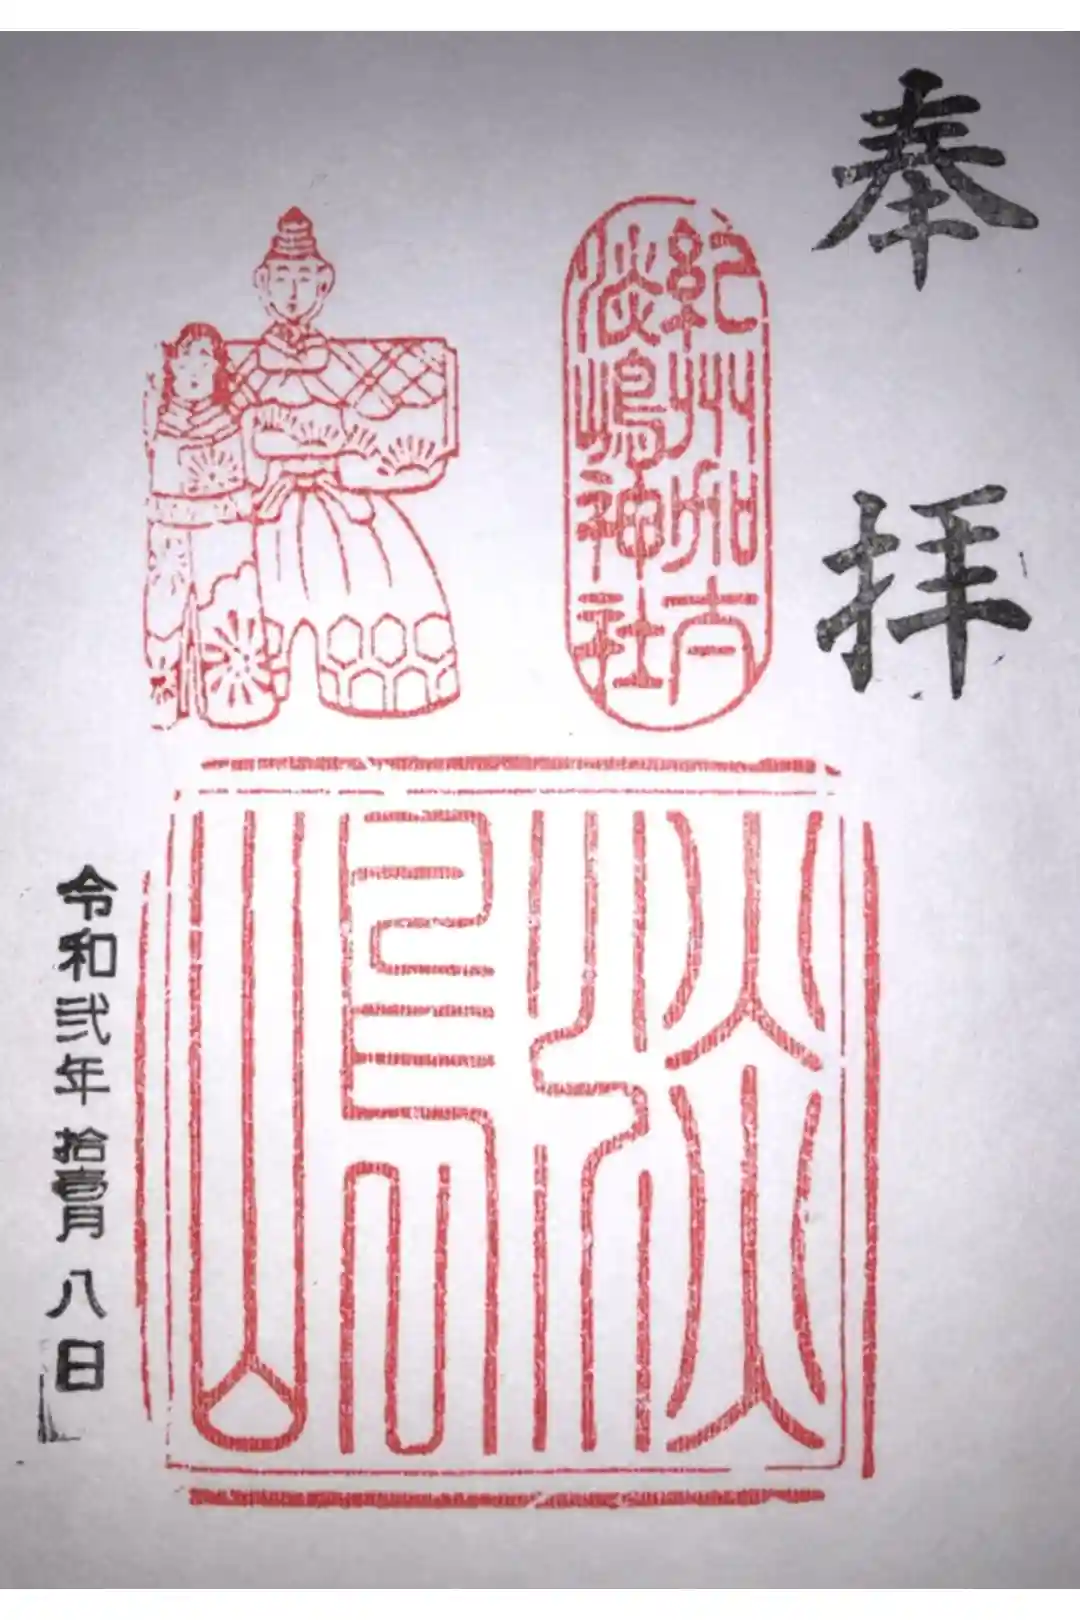 奉拝
紀州加太
淡嶋神社
淡嶋
令和弐年拾壹月八日